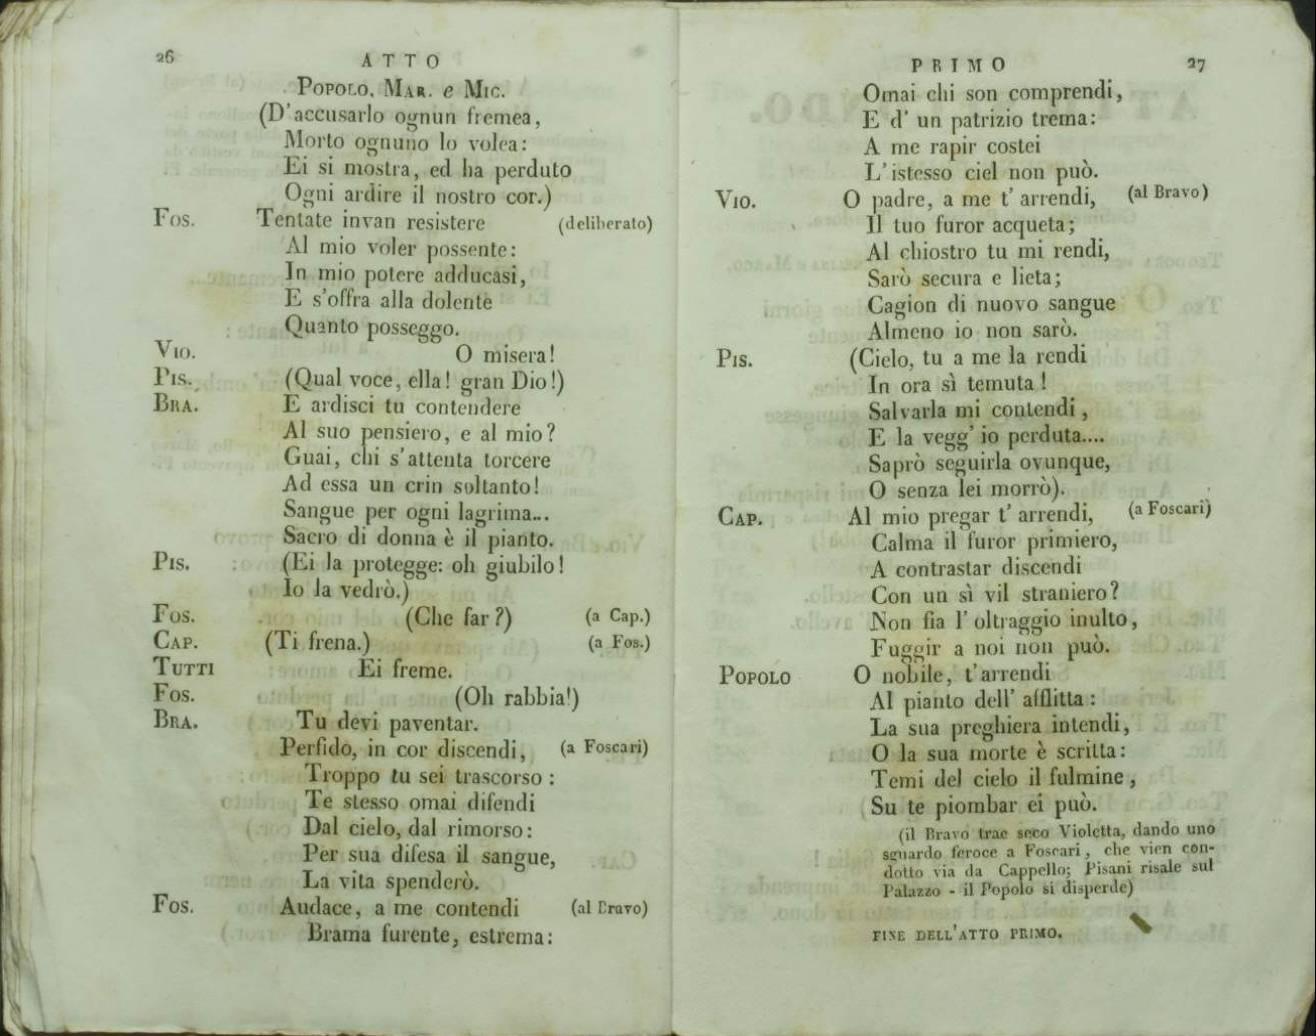 26
ATTO
POPOLO, MAR. e MIC.
(D'accusarlo ognun fremea,
Morto ognuno lo volea:
Ei si mostra, ed ha perduto
Ogni ardire il nostro cor.)
FOS. Tentate invan resistere (deliberato)
Al mio voler possente:
In mio potere adducasi,
E s'offra alla dolente
Quanto posseggo.
VIO. O misera!
PIS. (Qual voce, ella! gran Dio!)
BRA. E ardisci tu contendere
Al suo pensiero, e al mio?
Guai, chi s'attenta torcere
Ad essa un crin soltanto!
Sangue per ogni lagrima...
Sacro di donna è il pianto.
PIS. (Ei la protegge: oh giubilo!
Io la vedrò.)
FOS. (Che far?) (a Cap.)
CAP. (Ti frena.) (a Fos.)
TUTTI Ei freme.
FOS. (Oh rabbia!)
BRA. Tu devi paventar.
Perfido, in cor discendi, (a Foscari)
Troppo tu sei trascorso:
Te stesso omai difendi
Dal cielo, dal rimorso:
Per sua difesa il sangue,
La vita spenderò.
FOS. Audace, a me contendi (al Bravo)
Brama furente, estrema:
PRIMO
27
Omai chi son comprendi,
E d' un patrizio trema:
A me rapir costei
L'istesso ciel non può.
VIO. O padre, a me t' arrendi, (al Bravo)
Il tuo furor acqueta;
Al chiostro tu mi rendi,
Sarò secura e lieta;
Cagion di nuovo sangue
Almeno io non sarò.
PIS. (Cielo, tu a me la rendi
In ora sì temuta!
Salvarla mi contendi,
E la vegg' io perduta....
Saprò seguirla ovunque,
O senza lei morrò).
CAP. Al mio pregar t' arrendi, (a Foscari)
Calma il furor primiero,
A contrastar discendi
Con un sì vil straniero?
Non fia l' oltraggio inulto,
Fuggir a noi non può.
POPOLO O nobile, t'arrendi
Al pianto dell' afflitta:
La sua preghiera intendi,
O la sua morte è scritta:
Temi del cielo il fulmine,
Su te piombar ei può.
(il Bravo trae seco Violetta, dando uno
sguardo feroce a Foscari, che vien con-
dotto via da Cappello; Pisani risale sul
Palazzo - il Popolo si disperde)
FINE DELL'ATTO PRIMO.